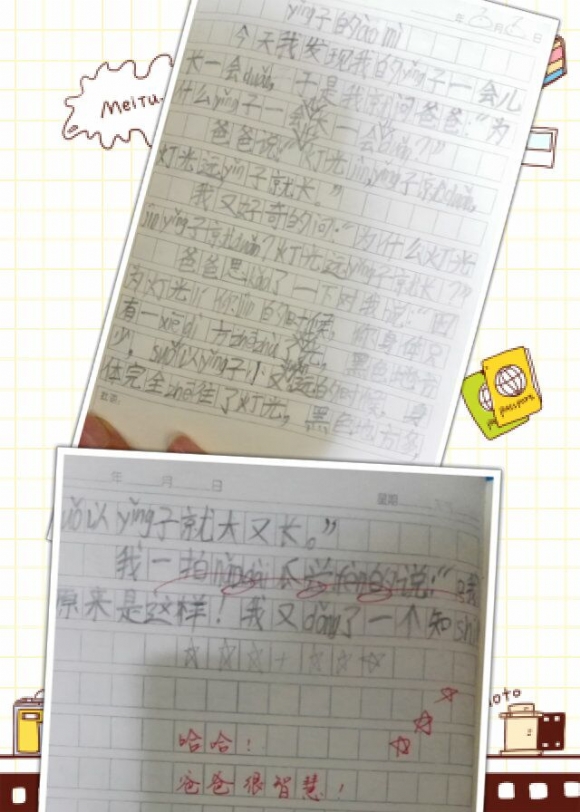 MeiTu
年 3 月 6 日
yǐng子的ào mì
今天我发现我的yǐng子一会儿
长一会duǎn, 于是我问爸爸:“为
什么yǐng子一会长一会duǎn?”
爸爸说:“灯光jìn,yǐng子就duǎn,
灯光远yǐng子就长。”
我又好奇的问:“为什么灯光
jìnyǐng子就duǎn?灯光远yǐng子就长?”
爸爸思kǎo了一下对我说:“因
为灯光lí你jìn的时候, 你身体只
有一xiē dì方zhēzhù了光, 黑色地方
少, suǒ以yǐng子小又
的时候, 身
体完全zhē住了灯光, 黑色地方多,
passport
年 月 日
星期
suǒ以yǐng子就大又长。”
我一拍nǎodai
的说:“哦
原来是这样!我又dǒng了一个知shi
哈哈!
爸爸很智慧!